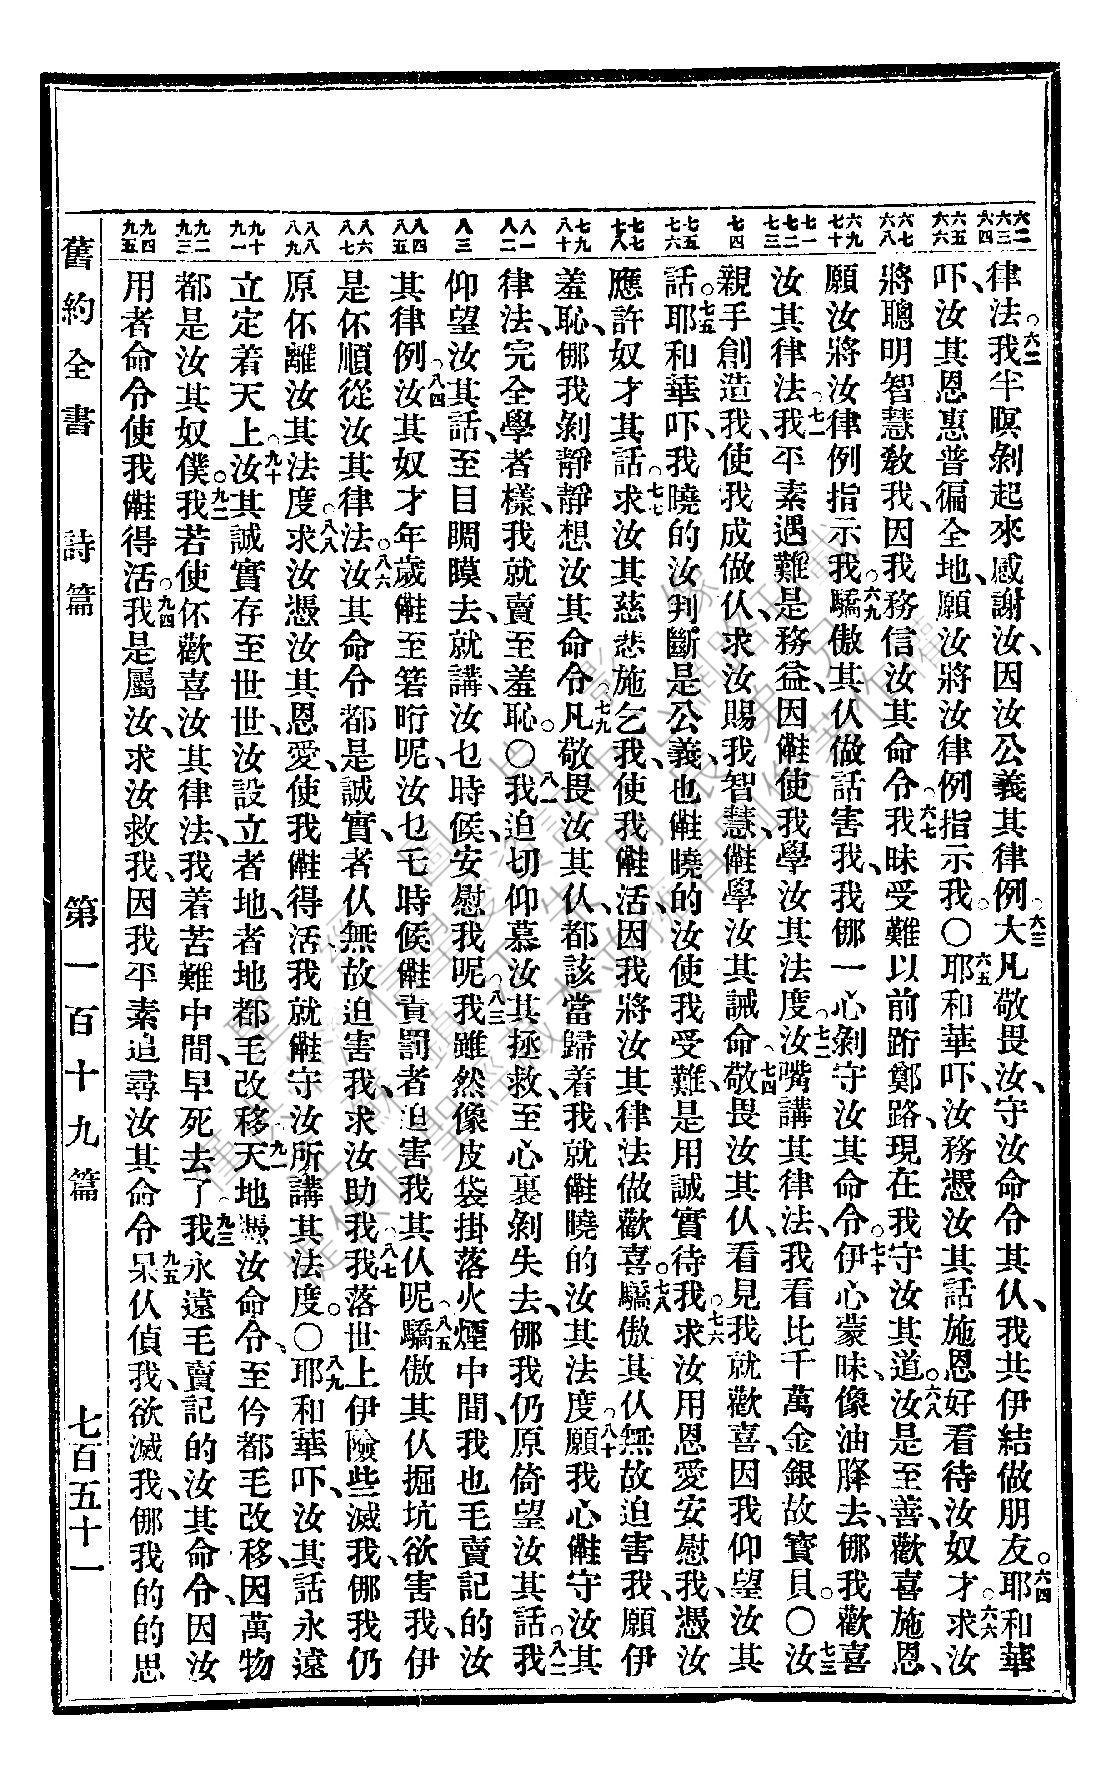 律法。六二我半暝剝起來感謝汝、因汝公義其律例。六三大凡敬畏汝、守汝命令其仈、我共伊結做朋友。六四耶和華
吓、汝其恩惠普徧全地、願汝將汝律例指示我。〇六五耶和華吓、汝務憑汝其話施恩好看待汝奴才。六六求汝
將聰明智慧敎我、因我務信汝其命令。六七我昧受難以前跲鄭路、現在我守汝其道。六八汝是至善、歡喜施恩、
願汝將汝律例指示我。六九驕傲其仈做話害我、我㑚一心剝守汝其命令。七十伊心蒙昧、像油膵去、㑚我歡喜
汝其律法。七一我平素遇難是務益、因㒕使我學汝其法度。七二汝嘴講其律法、我看比千萬金銀故寶貝。〇七三汝
親手創造我、使我成做仈、求汝賜我智慧、㒕學汝其誡命。七四敬畏汝其仈、看見我就歡喜、因我仰望汝其
話。七五耶和華吓、我曉的汝判斷是公義、也㒕曉的汝使我受難、是用誠實待我。七六求汝用恩愛安慰我、憑汝
應許奴才其話。七七求汝其慈悲施乞我、使我㒕活、因我將汝其律法做歡喜。七八驕傲其仈無故迫害我、願伊
羞恥、㑚我剝靜靜想汝其命令。七九凡敬畏汝其仈、都該當歸着我、就㒕曉的汝其法度。八十願我心㒕守汝其
律法、完全學者樣、我就賣至羞恥。〇八一我迫切仰慕汝其拯救、至心裏剝失去、㑚我仍原倚望汝其話。八二我
仰望汝其話、至目睭瞙去、就講、汝乜時候、安慰我呢。八三我雖然像皮袋掛落火煙中間、我也毛賣記的汝
其律例。八四汝其奴才年歲㒕至箬䀪呢、汝乜乇時候㒕責罰者迫害我其仈呢。八五驕傲其仈掘坑欲害我、伊
是伓順從汝其律法。八六汝其命令都是誠實、者仈無故迫害我、求汝助我。八七我落世上伊險些滅我、㑚我仍
原伓離汝其法度。八八求汝憑汝其恩愛、使我㒕得活、我就㒕守汝所講其法度。〇八九耶和華吓、汝其話永遠
立定着天上。九十汝其誠實存至世世、汝設立者地、者地都毛改移。九一天地憑汝命令、至仱都毛改移、因萬物
都是汝其奴僕。九二我若使伓歡喜汝其律法、我着苦難中間、早死去了。九三我永遠毛賣記的汝其命令、因汝
用者命令使我㒕得活。九四我是屬汝、求汝救我、因我平素追尋汝其命令。九五呆仈偵我、欲滅我、㑚我的的思
舊約全書　詩篇　第一百十九篇　七百五十一